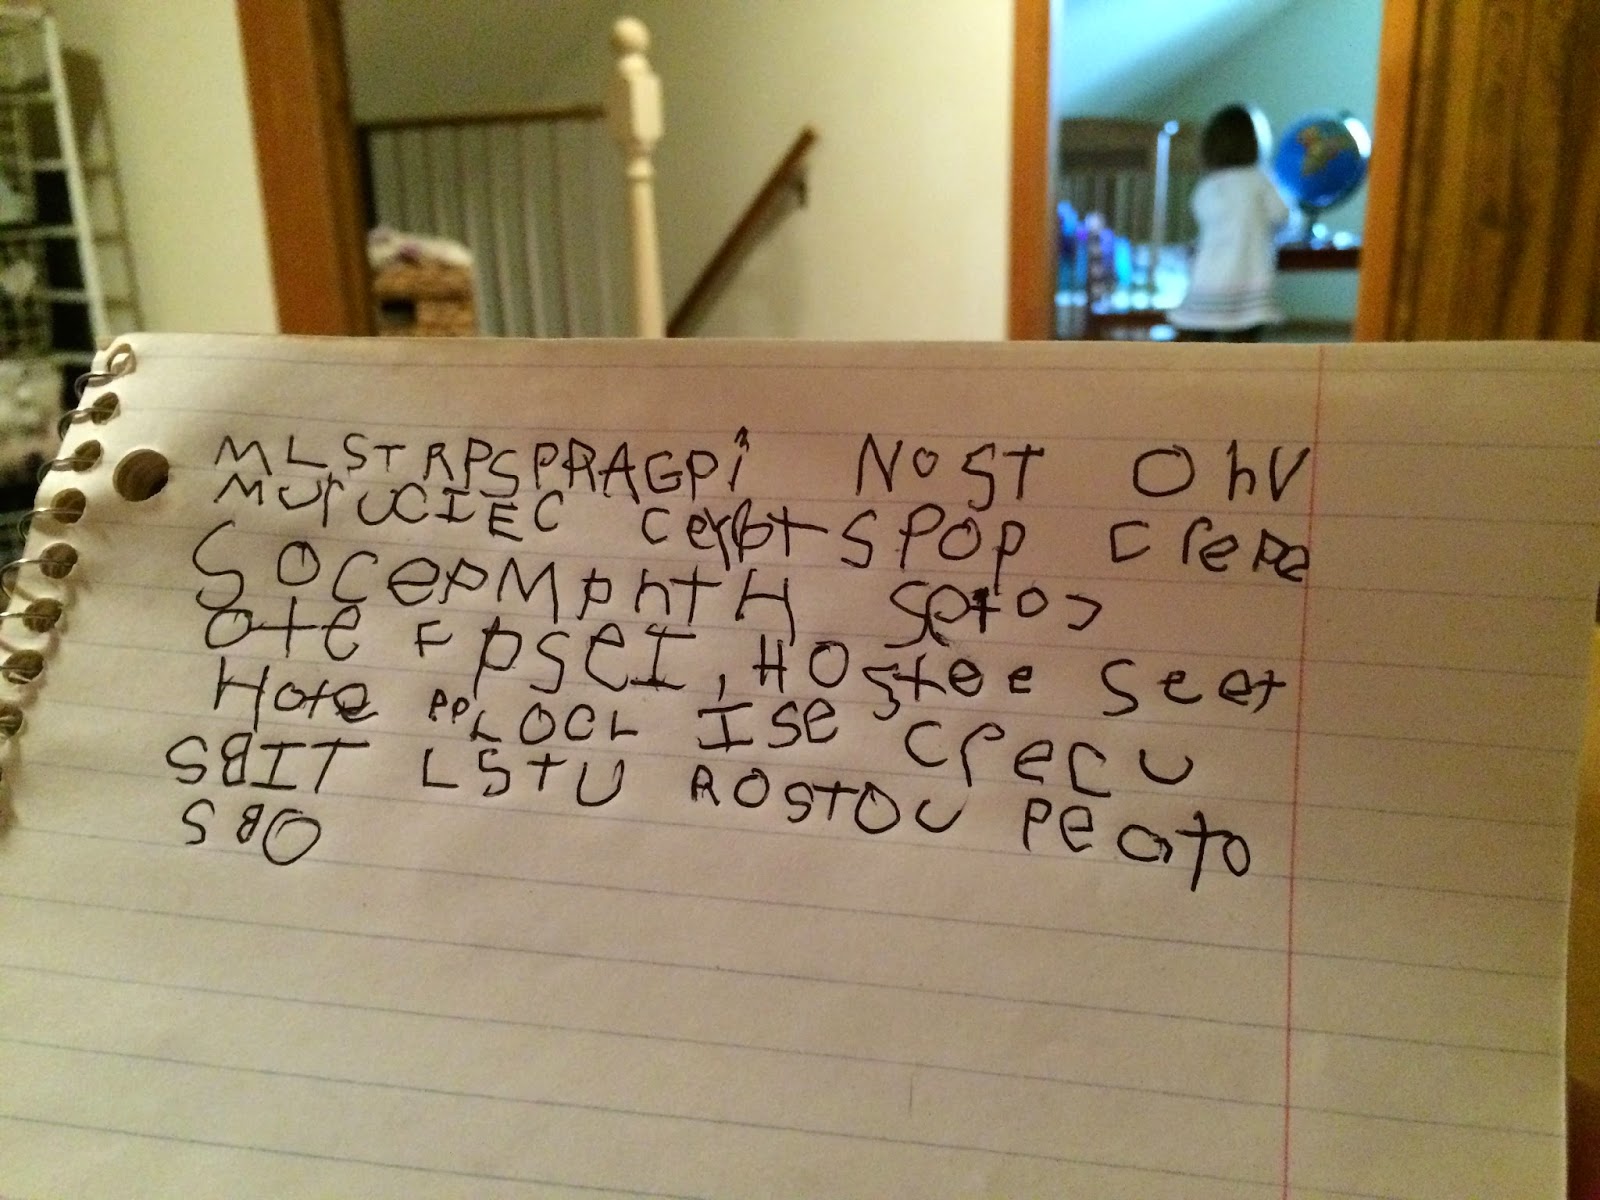 MLSTRPSPRAGPi NOST OhV
MUrUCIEC CerptSPOP Crepe
SOCepMphtH Setos
Ote FPSeI, HOstee Seet
Hote PPLOCL ISe CreCU
SBIT LSTU ROSTOU Peato
SBO